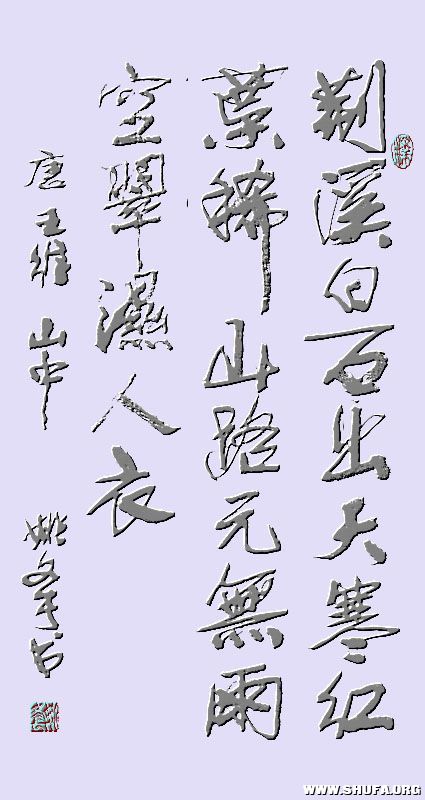 荆溪白石出天寒红
葉稀山路元無雨
空翠濕人衣
唐王维山中
姚 书
WWW.SHUFA.ORG